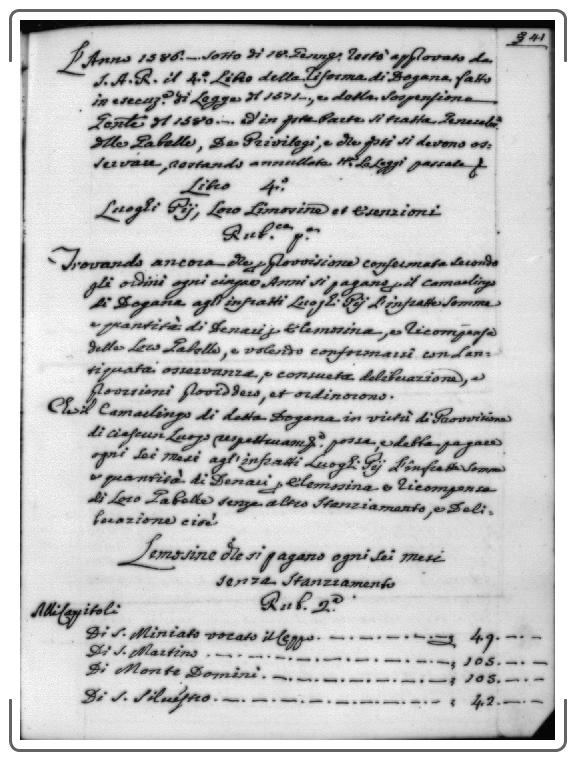 341
L'Anno 1586. Sotto di 18. Genn.o restò approvato da
S. A. R. il 4.o Libro della Riforma di Dogana fatto
in esecuz.e di Legge del 1571, e dalla Sospensione
del 1580 ed in q.sta Parte si tratta
delle Gabelle, De Privilegi, e che q.sti si devono os-
servare, restando annullate le Leggi passate
Libro 4.o
Luoghi Pij, Loro Limosine et Esenzioni
Rub.ca p.a
Trovando ancora che p. provvisione confermata secondo
gli ordini ogni cinque Anni si pagano p. il camarlingo
di Dogana agl'infratti Luoghi Pij l'infratte somme
e quantità di Denari p. Elemosina, e Ricompensa
delle Loro Gabelle, e volendo conformarsi con l'an-
tiquata osservanza, e consueta deliberazione, e
provisioni providdero, et ordinorono.
Che il Camarlingo di detta Dogana in virtù di Provvisione
di ciascun Luogo respettivam.te possa, e debba pagare
ogni sei mesi agl'infratti Luoghi Pij l'infratte somme
e quantità di Denari p. Elemosina e Ricompensa
di Loro Gabelle senza altro Stanziamento, e Deli-
berazione cioè
Lemosine che si pagano ogni sei mesi
senza Stanziamento
Rub. 2.a
Alli Capitoli
Di S. Miniato vocato il Ceppo 49.
Di S. Martino 105.
Di Monte Domini 105.
Di S. Silvestro 42.